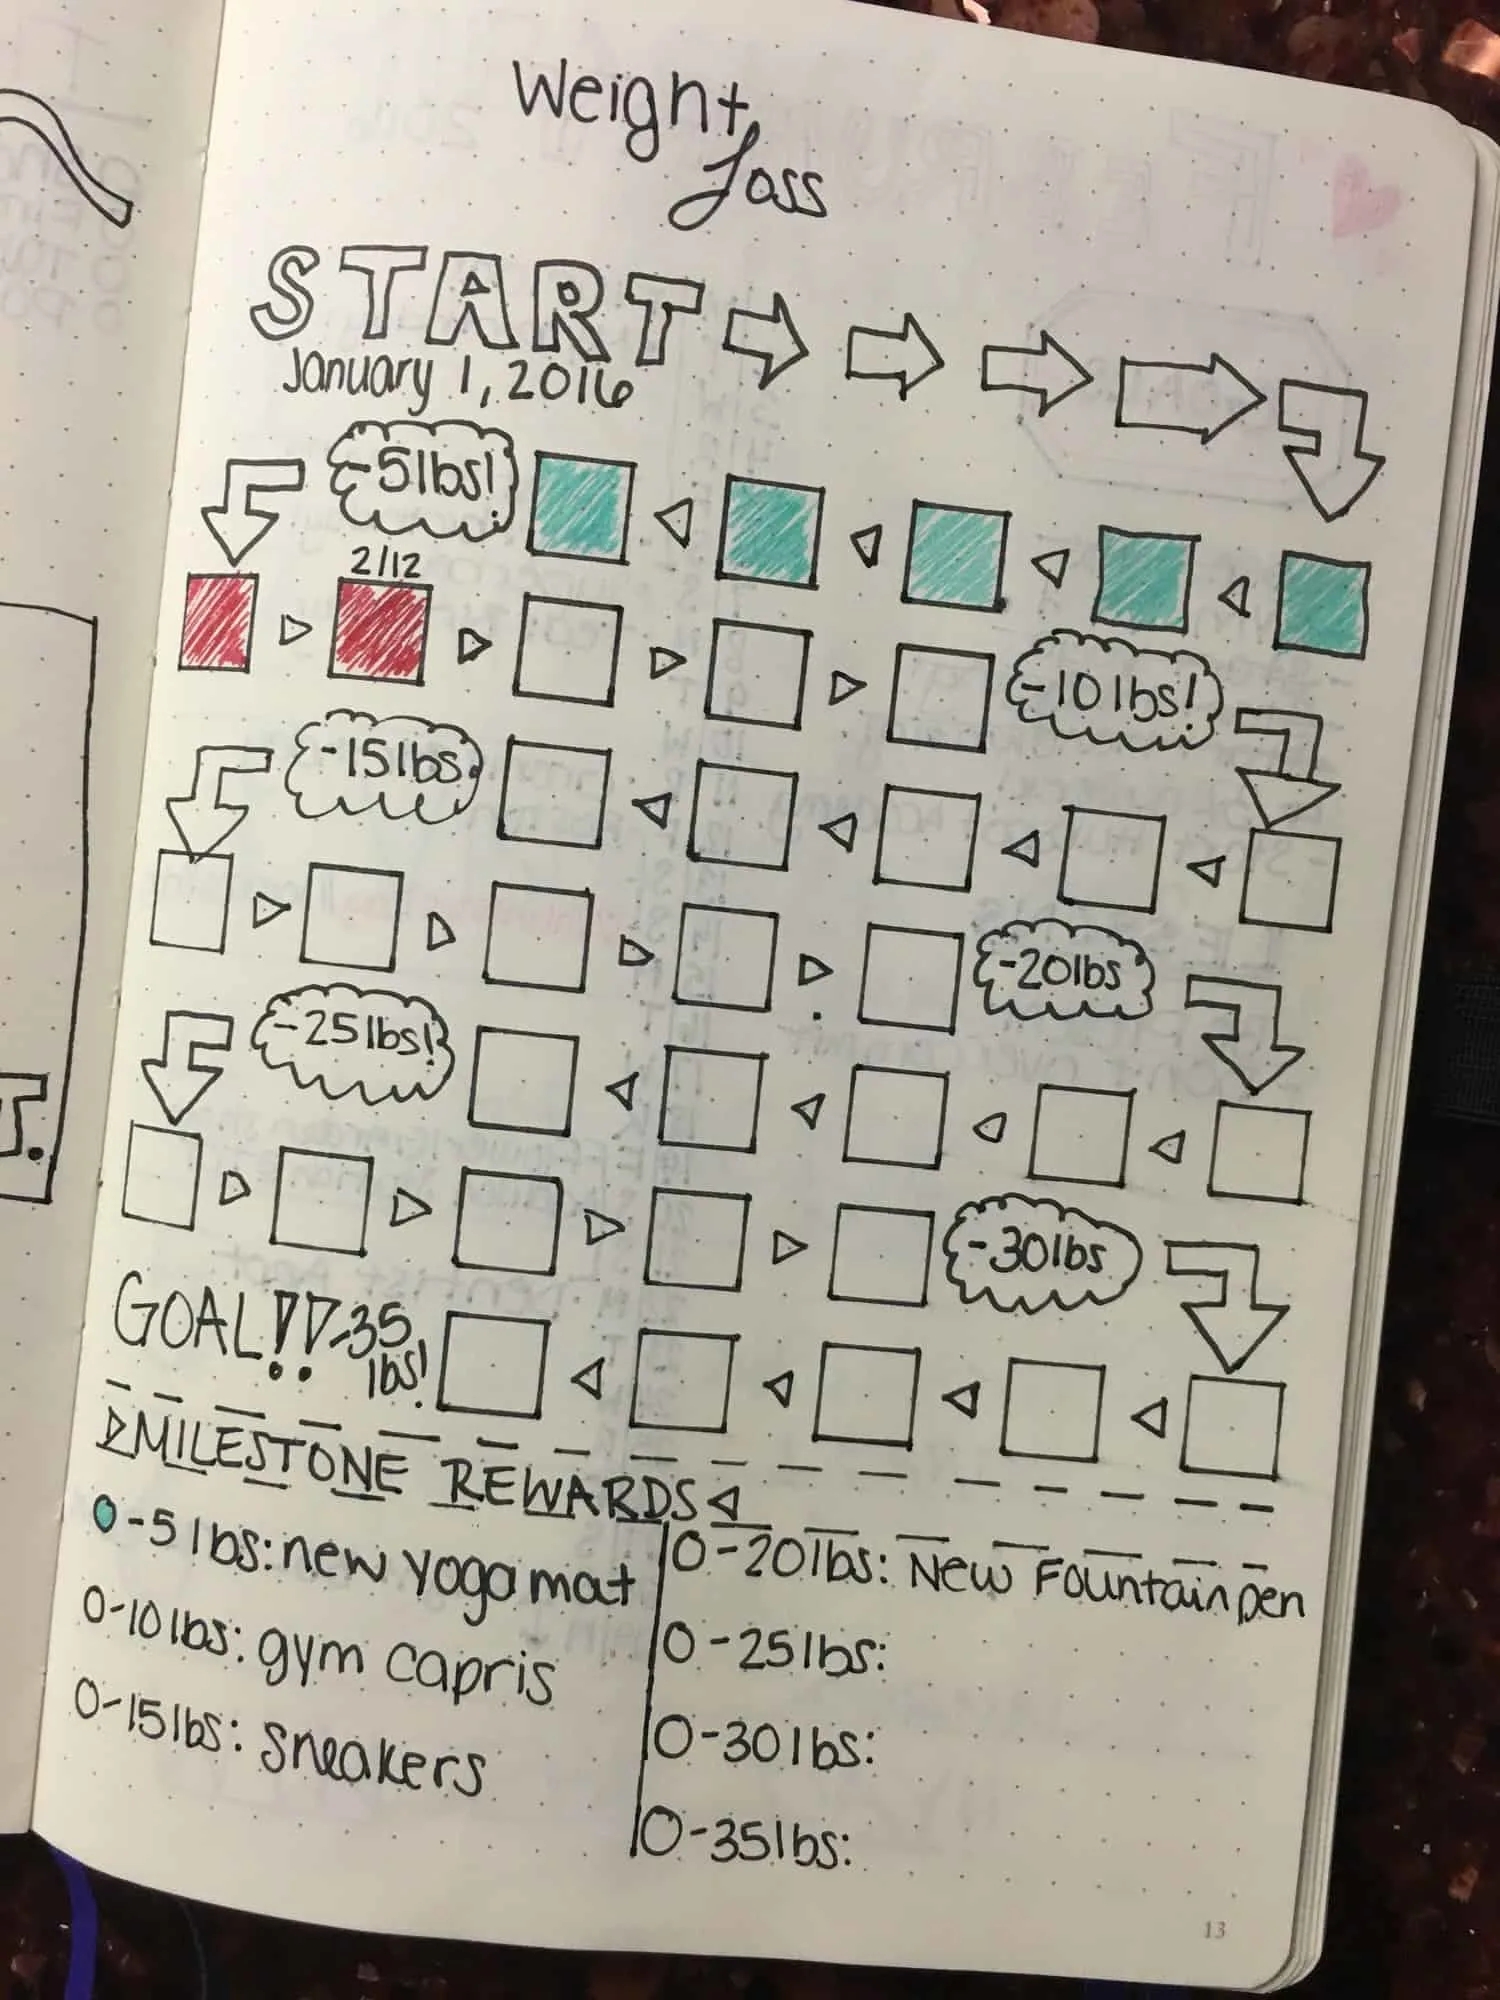 Weight
Loss
START
January 1, 2016
-5lbs!
2/12
-10lbs!
-15lbs.
-20lbs
-25lbs!
-30lbs
GOAL!! -35
lbs!
MILESTONE REWARDS
0-5lbs: new yoga mat
0-10lbs: gym capris
0-15lbs: sneakers
0-20lbs: New Fountain pen
0-25lbs:
0-30lbs:
0-35lbs:
13